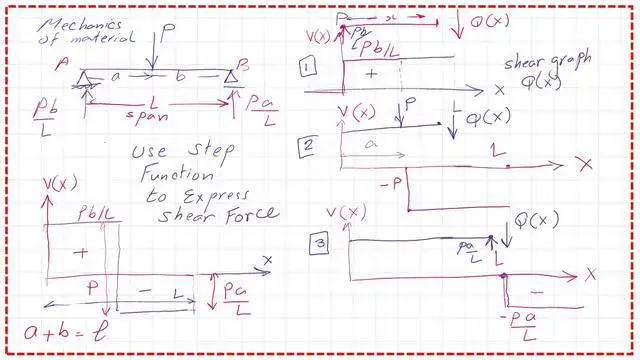 Mechanics
of material
P
A
a
b
B
Pb/L
L
span
Pa/L
Use Step
Function
to Express
Shear Force
V(X)
Pb/L
+
P
-
L
X
Pa/L
a+b=l
1
V(X)
Pb/L
x
Q(X)
+
X
shear graph
Q(X)
2
V(X)
P
L
Q(X)
a
L
X
-P
3
V(X)
Pa/L
L
Q(X)
X
-
-Pa/L